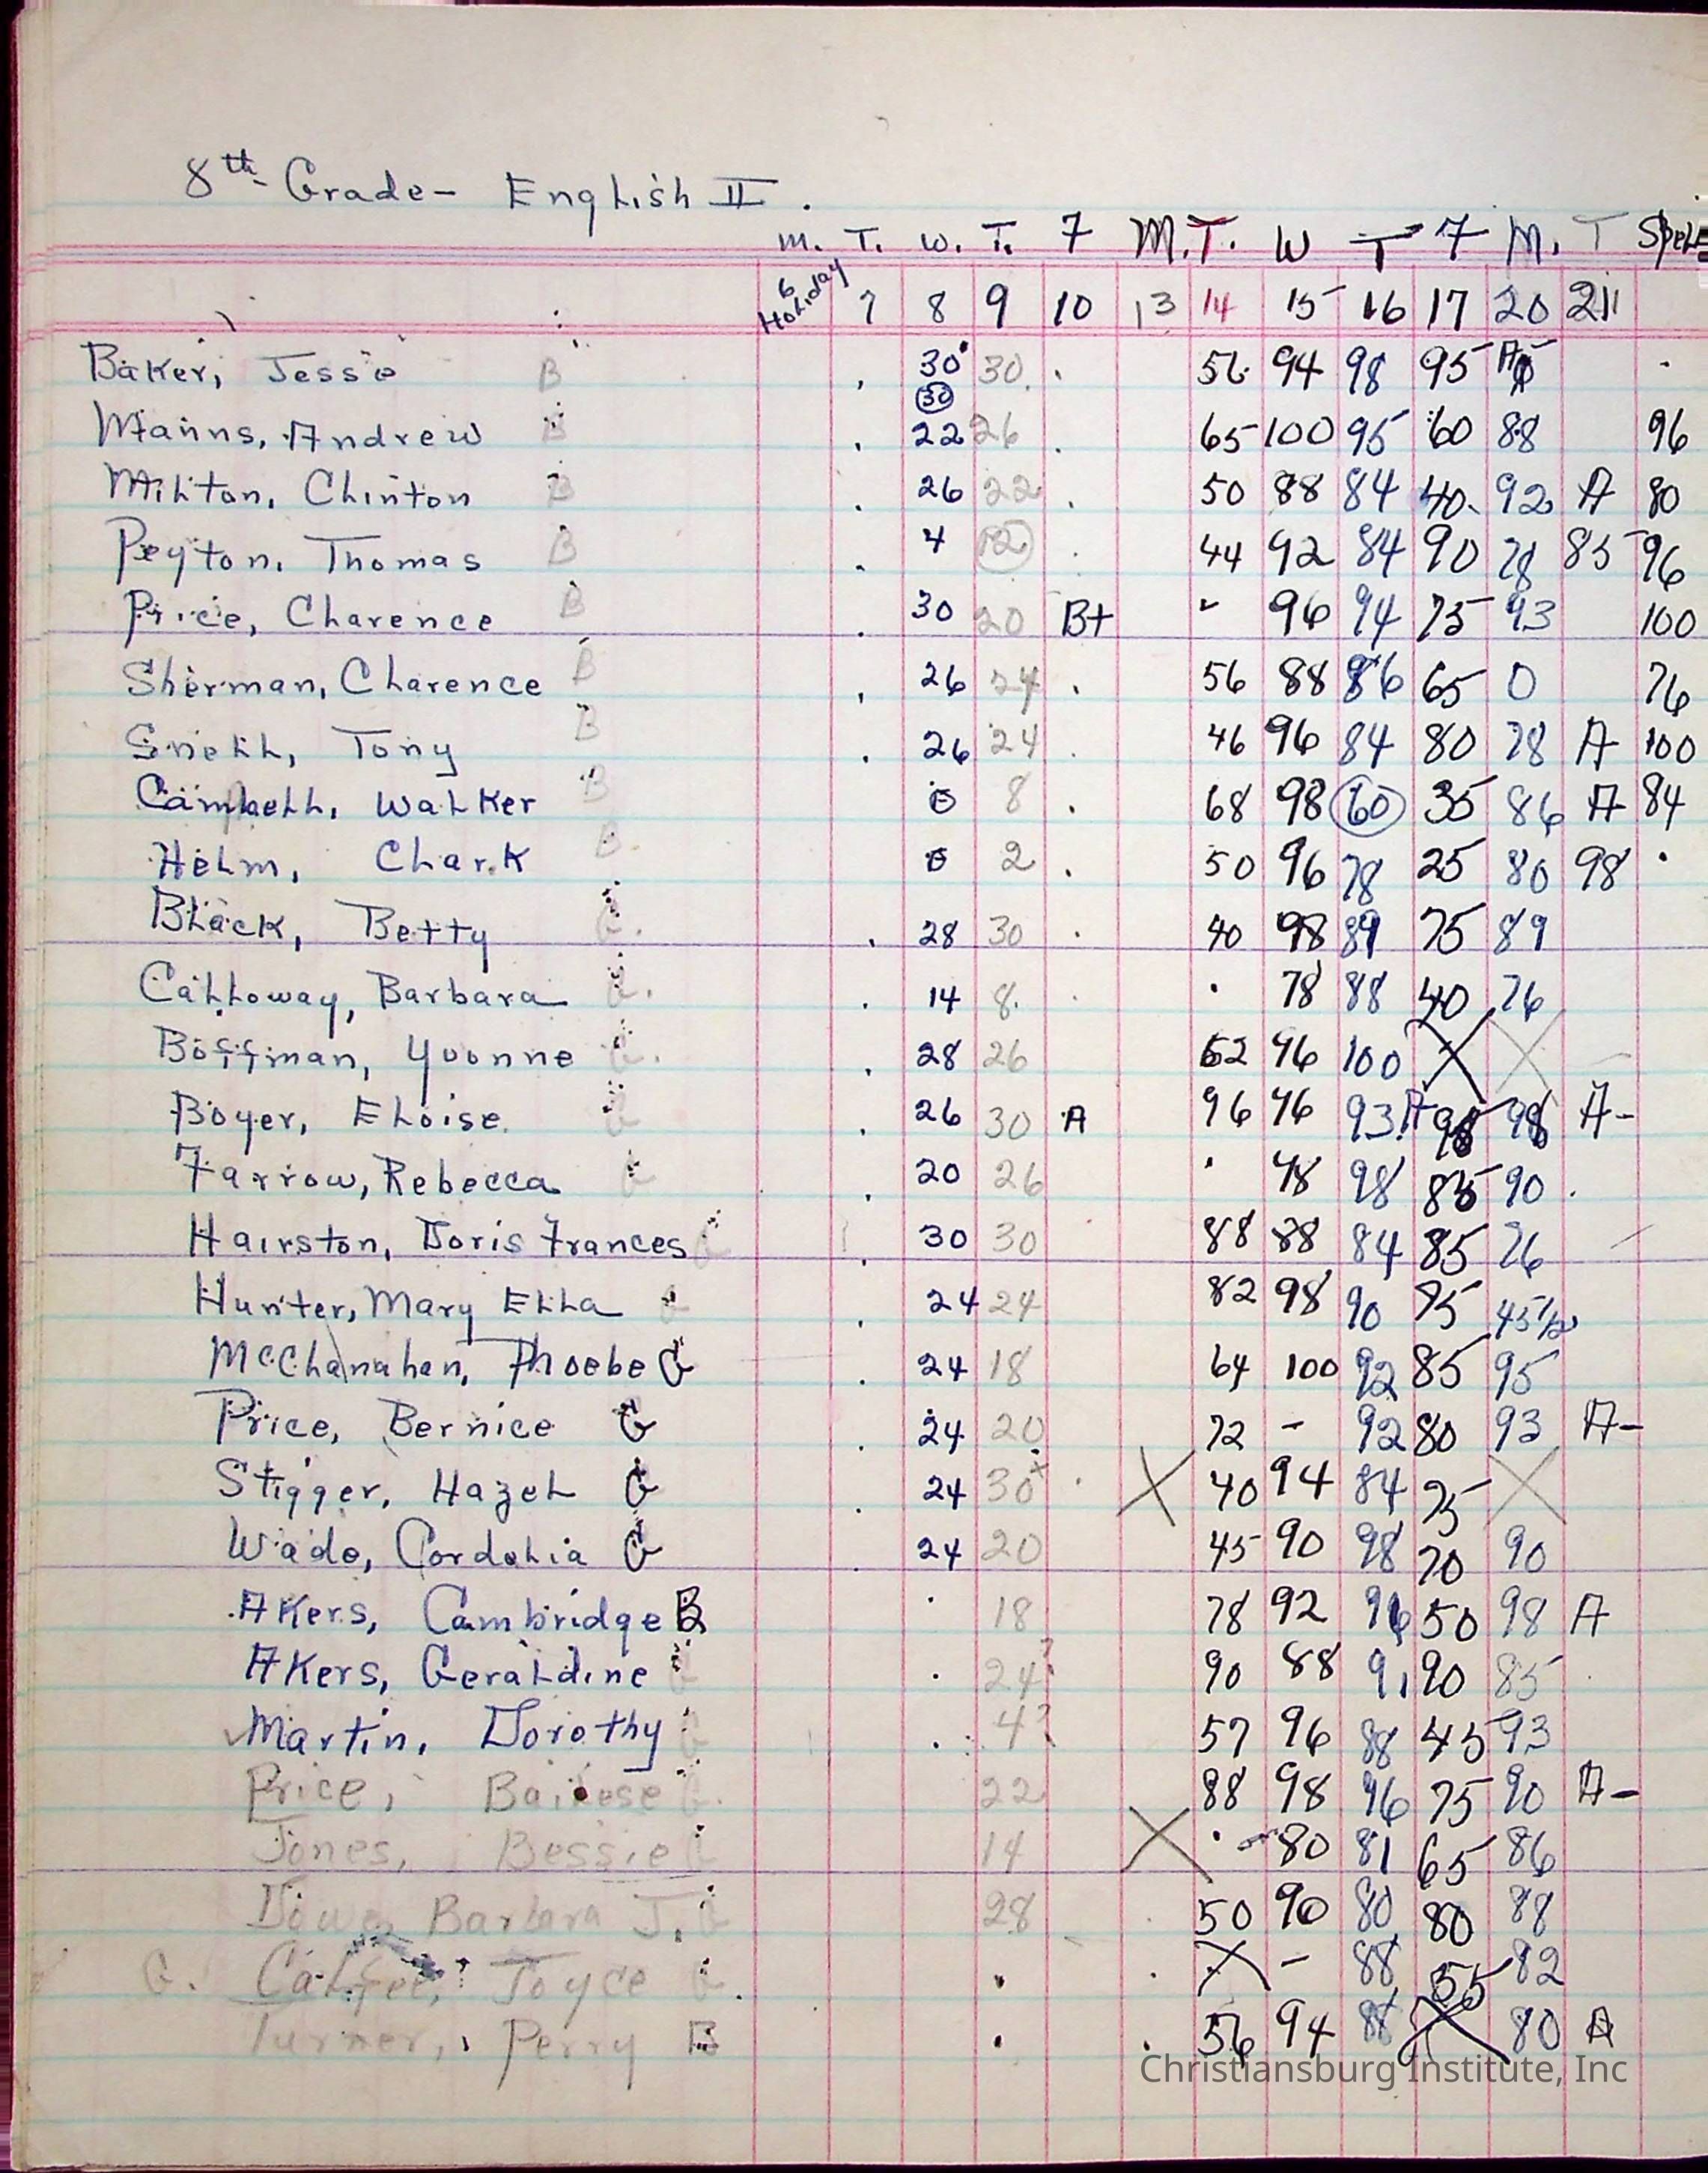 8th Grade- English II.
m. T. W. T. F M. T. W T F M. T Spell
6 Holiday 7 8 9 10 13 14 15 16 17 20 21
Baker, Jesse B . 30 30 30 . 56 94 98 95 .
Manns, Andrew B . 22 26 . 65 100 95 60 88 96
Milton, Clinton B . 26 22 . 50 88 84 40 92 A 80
Peyton, Thomas B . 4 12 . 44 92 84 90 78 85 96
Price, Clarence B . 30 20 B+ 96 94 75 93 100
Sherman, Clarence B . 26 24 . 56 88 86 65 0 76
Snell, Tony B . 26 24 . 46 96 84 80 78 A 100
Cambell, Walker B 0 8 . 68 98 60 35 86 A 84
Helm, Clark B. 0 2 . 50 96 78 25 80 98 .
Black, Betty G. . 28 30 . 40 98 89 75 89
Calloway, Barbara G. . 14 8 . . 78 88 40 76
Boffman, Yvonne G. . 28 26 52 96 100 X X
Boyer, Eloise G . 26 30 A 96 96 93 98 A-
Farrow, Rebecca G . 20 26 . 98 98 85 90 .
Hairston, Doris Frances G . 30 30 88 88 84 85 76
Hunter, Mary Ella G . 24 24 82 98 90 75 45½
McClanahan, Phoebe G . 24 18 64 100 92 85 95
Price, Bernice G . 24 20 72 - 92 80 93 A-
Stigger, Hazel G . 24 30 . X 40 94 84 75 X
Wade, Cordelia G . 24 20 45 90 98 70 90
Akers, Cambridge B . 18 78 92 96 50 98 A
Akers, Geraldine G . 24? 90 88 91 90 85
Martin, Dorothy G . 4? 57 96 88 45 93
Price, G. 22 88 98 96 75 90 A-
Jones, Bessie G 14 X . 80 81 65 86
Barbara J. G 28 50 90 80 80 88
G. Calfee, Joyce G. . . X - 88 55 82
Turner, Perry B . . 56 94 88 X 80 A
Christiansburg Institute, Inc